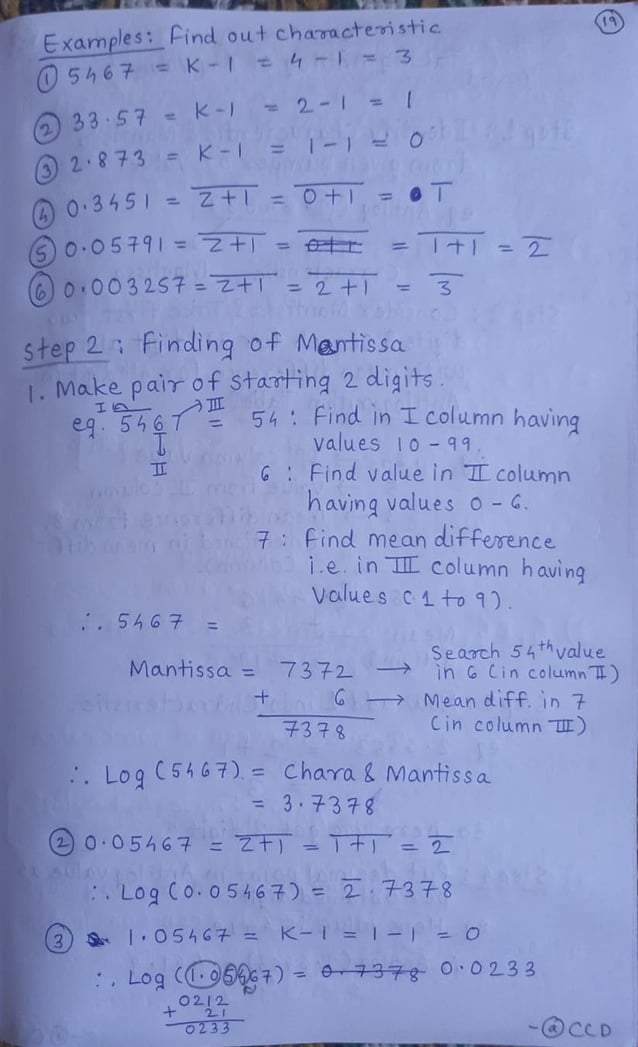 19
Examples: Find out characteristic
① 5467 = K-1 = 4-1 = 3
② 33.57 = K-1 = 2-1 = 1
③ 2.873 = K-1 = 1-1 = 0
④ 0.3451 = Z̅+̅1̅ = 0̅+̅1̅ = 1̅
⑤ 0.05791 = Z̅+̅1̅ = 0+1 = 1̅+̅1̅ = 2̅
⑥ 0.003257 = Z̅+̅1̅ = 2̅+̅1̅ = 3̅
Step 2: Finding of Mantissa
1. Make pair of starting 2 digits.
I III
eg. 5467 = 54 : Find in I column having
II values 10-99.
6 : Find value in II column
having values 0-6.
7 : Find mean difference
i.e. in III column having
values (1 to 9).
∴ 5467 =
Mantissa = 7372 → Search 54th value in 6 (in column II)
+ 6 → Mean diff. in 7
7378 (in column III)
∴ Log (5467). = Chara & Mantissa
= 3.7378
② 0.05467 = Z̅+̅1̅ = 1̅+̅1̅ = 2̅
∴ Log (0.05467) = 2̅.7378
③ 1.05467 = K-1 = 1-1 = 0
∴, Log (1.05467) = 0.7378 0.0233
0212
+ 21
0233
-@CCD